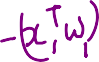 -(x₁ᵀw₁